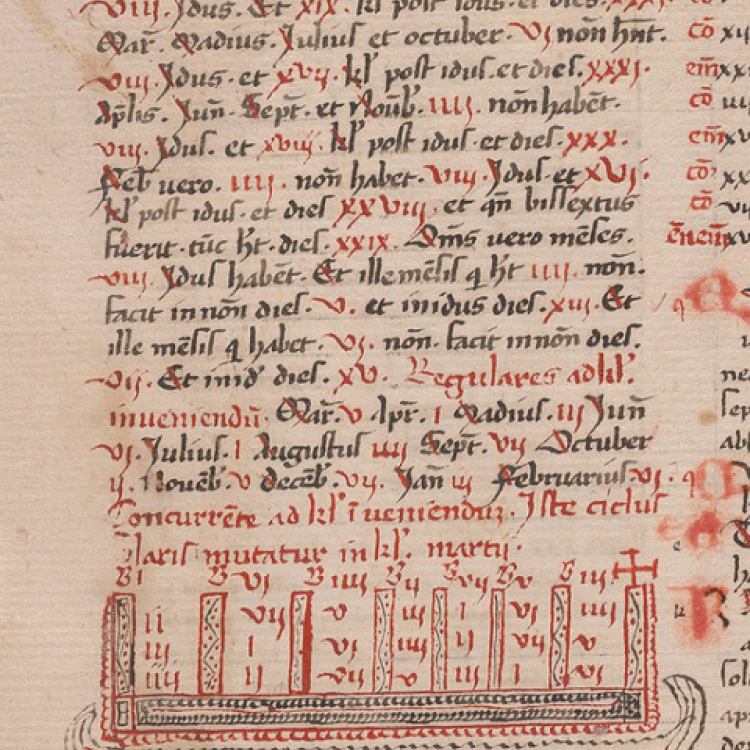 viii. Jdus. Et xix. kl' post idus. et dies. xxxi.
Mar̄. Madius. Julius et octuber. vi non hn̄t.
viii. Jdus. et xvii. kl' post idus. et dies. xxxi.
Ap̄lis. Jun̄. Sept̄. et Nouēb'. iiii. non habēt.
viii. Jdus. et xviii. kl' post idus. et dies. xxx.
Feb' uero. iiii. non habet. viii. Jdus. et xvi.
kl' post idus. et dies xxviii. et qn̄ bissextus
fuerit. tūc ht̄. dies. xxix. Om̄s uero mēses.
viii. Jdus habēt. Et ille mēsis q ht̄ iiii. non̄.
facit in non̄ dies. v. et in idus dies. xiii. Et
ille mēsis q habet. vi. non̄. facit in non̄ dies.
vii. Et in id' dies. xv. Regulares ad kl'.
inueniendū. Mar̄. v Apr̄. i Madius. iii Jun̄
vi. Julius. i Augustus iiii Sept̄. vii Octuber
ii. Nouēb'. v decēb'. vii. Jan̄ iii Februarius. vi.
Concurrēte ad kl' īueniendū. Iste ciclus
laris mutatur in kl'. martii.
B i B vi B iiii B ii B vii B v B iii
ii vii v iii i vi iiii
iii i vi iiii ii vii v
iiii ii vii v iii i vi